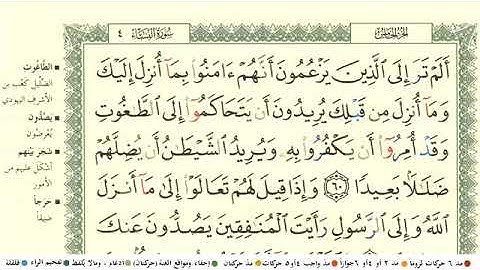 الجزء الخامس
سورة النساء ٤
ألم تر إلى الذين يزعمون أنهم ءامنوا بما أنزل إليك
وما أنزل من قبلك يريدون أن يتحاكموا إلى الطغوت
وقد أمروا أن يكفروا به ويريد الشيطن أن يضلهم
ضللا بعيدا ٦٠ وإذا قيل لهم تعالوا إلى ما أنزل
الله وإلى الرسول رأيت المنفقين يصدون عنك
الطاغوت
الضليل كعب بن
الأشرف اليهودي
يصدون
يعرضون
شجر بينهم
أشكل عليهم من
الأمور
حرجا
ضيقا
مد ٦ حركات لزوما مد ٢ أو ٤ أو ٦ جوازا مد واجب ٤ أو ٥ حركات مد حركتان إخفاء، ومواقع الغنة (حركتان) ادغام، ومالا يلفظ تفخيم الراء قلقلة